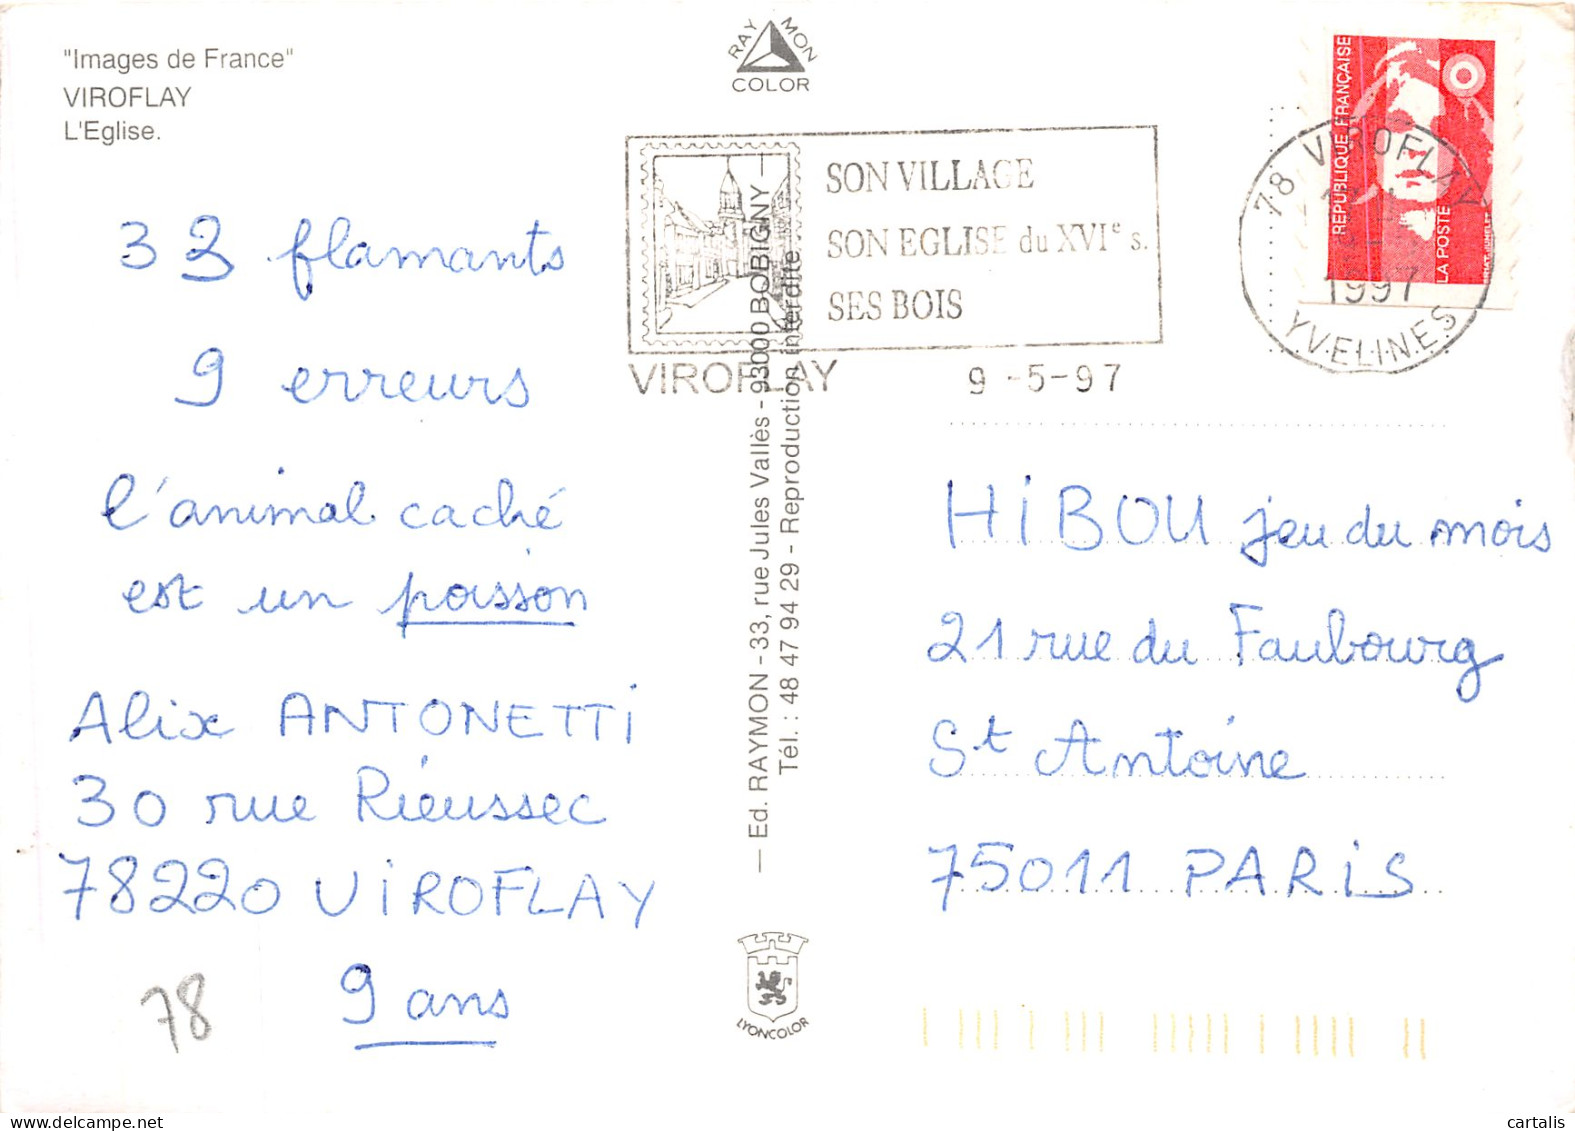 "Images de France"
VIROFLAY
L'Eglise.
RAYMON
COLOR
SON VILLAGE
SON EGLISE du XVIe s.
SES BOIS
VIROFLAY
9 -5-97
78 VIROFLAY
1997
YVELINES
REPUBLIQUE FRANÇAISE
LA POSTE
33 flamants
9 erreurs
l'animal caché
est un poisson
Alix ANTONETTI
30 rue Rieussec
78220 VIROFLAY
9 ans
78
— Ed. RAYMON - 33, rue Jules Vallès - 93000 BOBIGNY —
Tél. : 48 47 94 29 - Reproduction interdite
LYONCOLOR
HIBOU jeu du mois
21 rue du Faubourg
St Antoine
75011 PARIS
cartalis